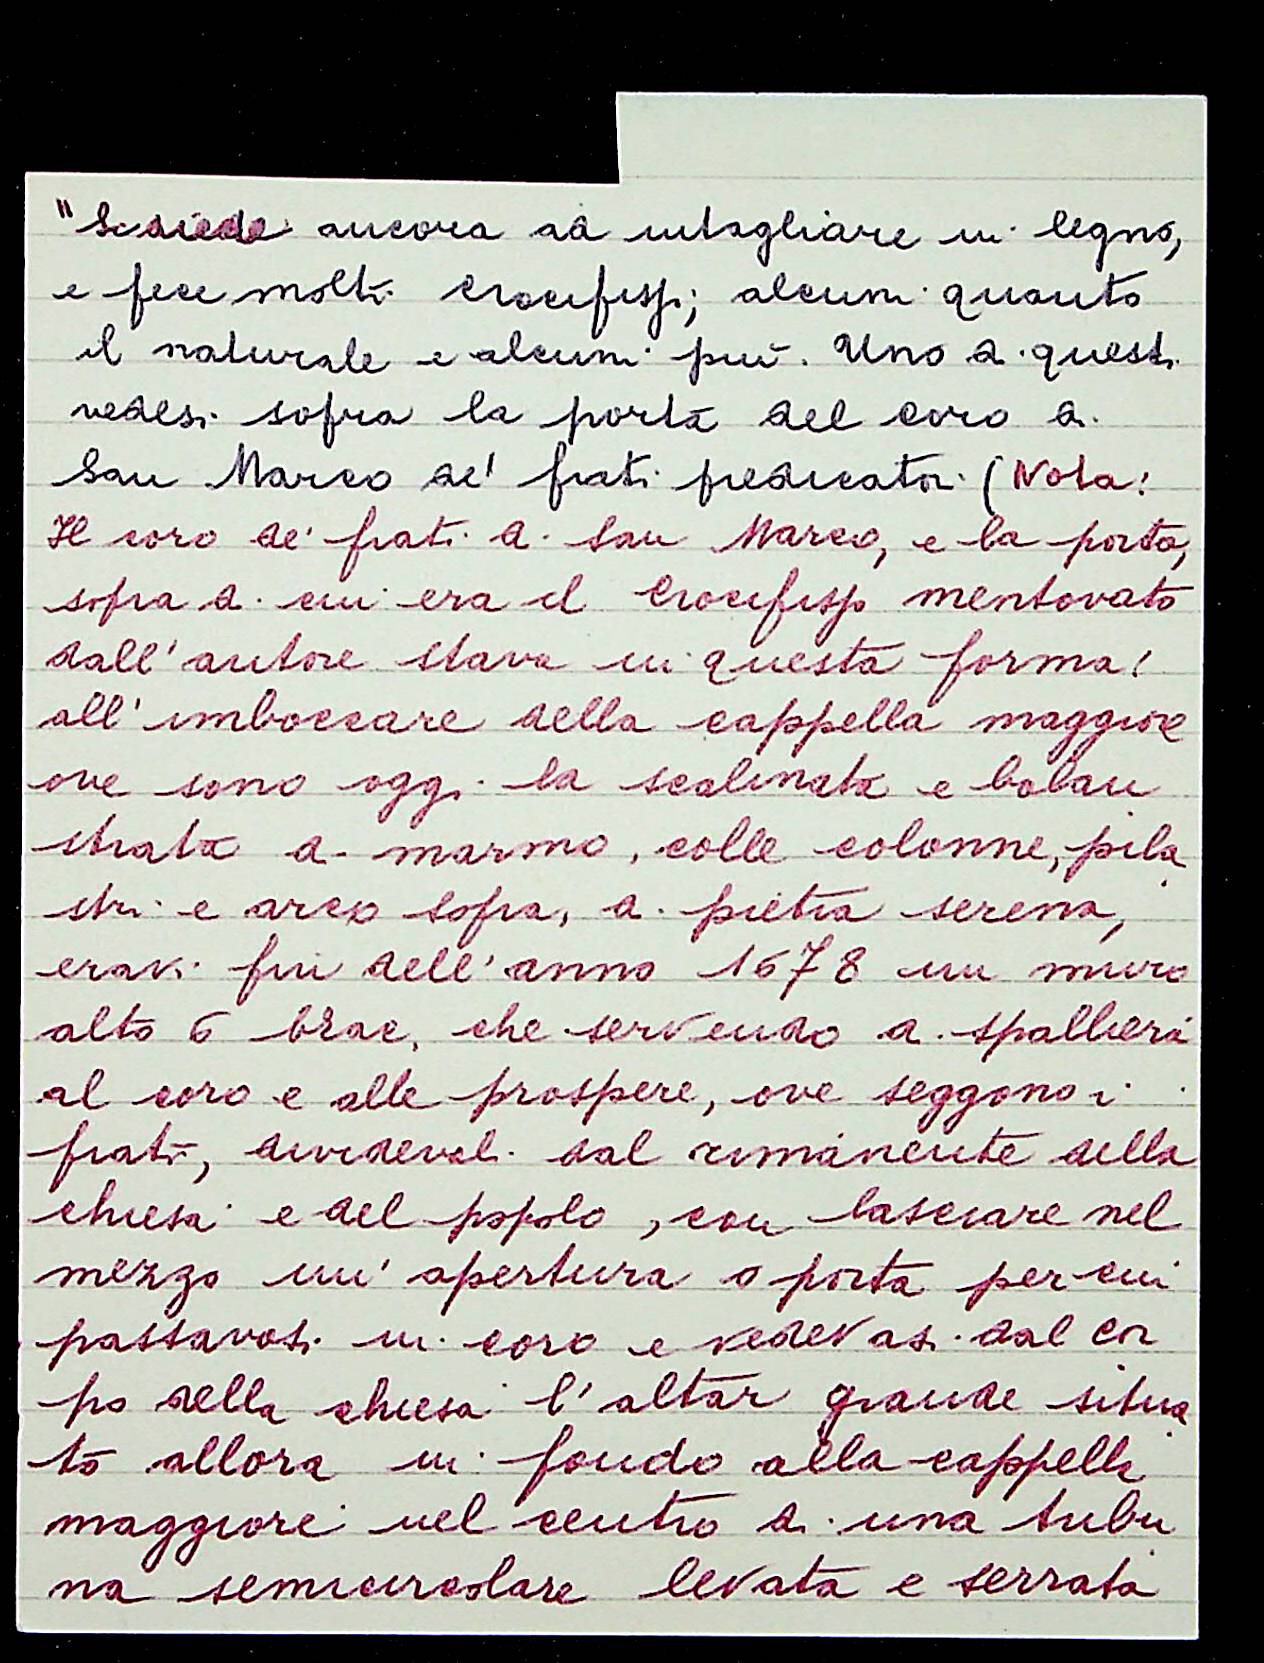 "Si diede ancora ad intagliare in legno,
e fece molti Crocifissi; alcuni quanto
il naturale e alcuni più. Uno di questi
vedesi sopra la porta del coro di
San Marco de' frati predicatori (Nota:
Il coro de' frati di San Marco, e la porta,
sopra di cui era il Crocifisso mentovato
dall'autore stava in questa forma:
all'imboccare della cappella maggiore
ove sono oggi la scalinata e balau
strata di marmo, colle colonne, pila
stri e arco sopra, di pietra serena,
eravi fin dell'anno 1678 un muro
alto 6 brac. che servendo di spalliera
al coro e alle prospere, ove seggono i
frati, dividevali dal rimanente della
chiesa e del popolo, con lasciare nel
mezzo un'apertura o porta per cui
passavasi in coro e vedevasi dal cor
po della chiesa l'altar grande situa
to allora in fondo alla cappella
maggiore nel centro di una tribu
na semicircolare levata e serrata